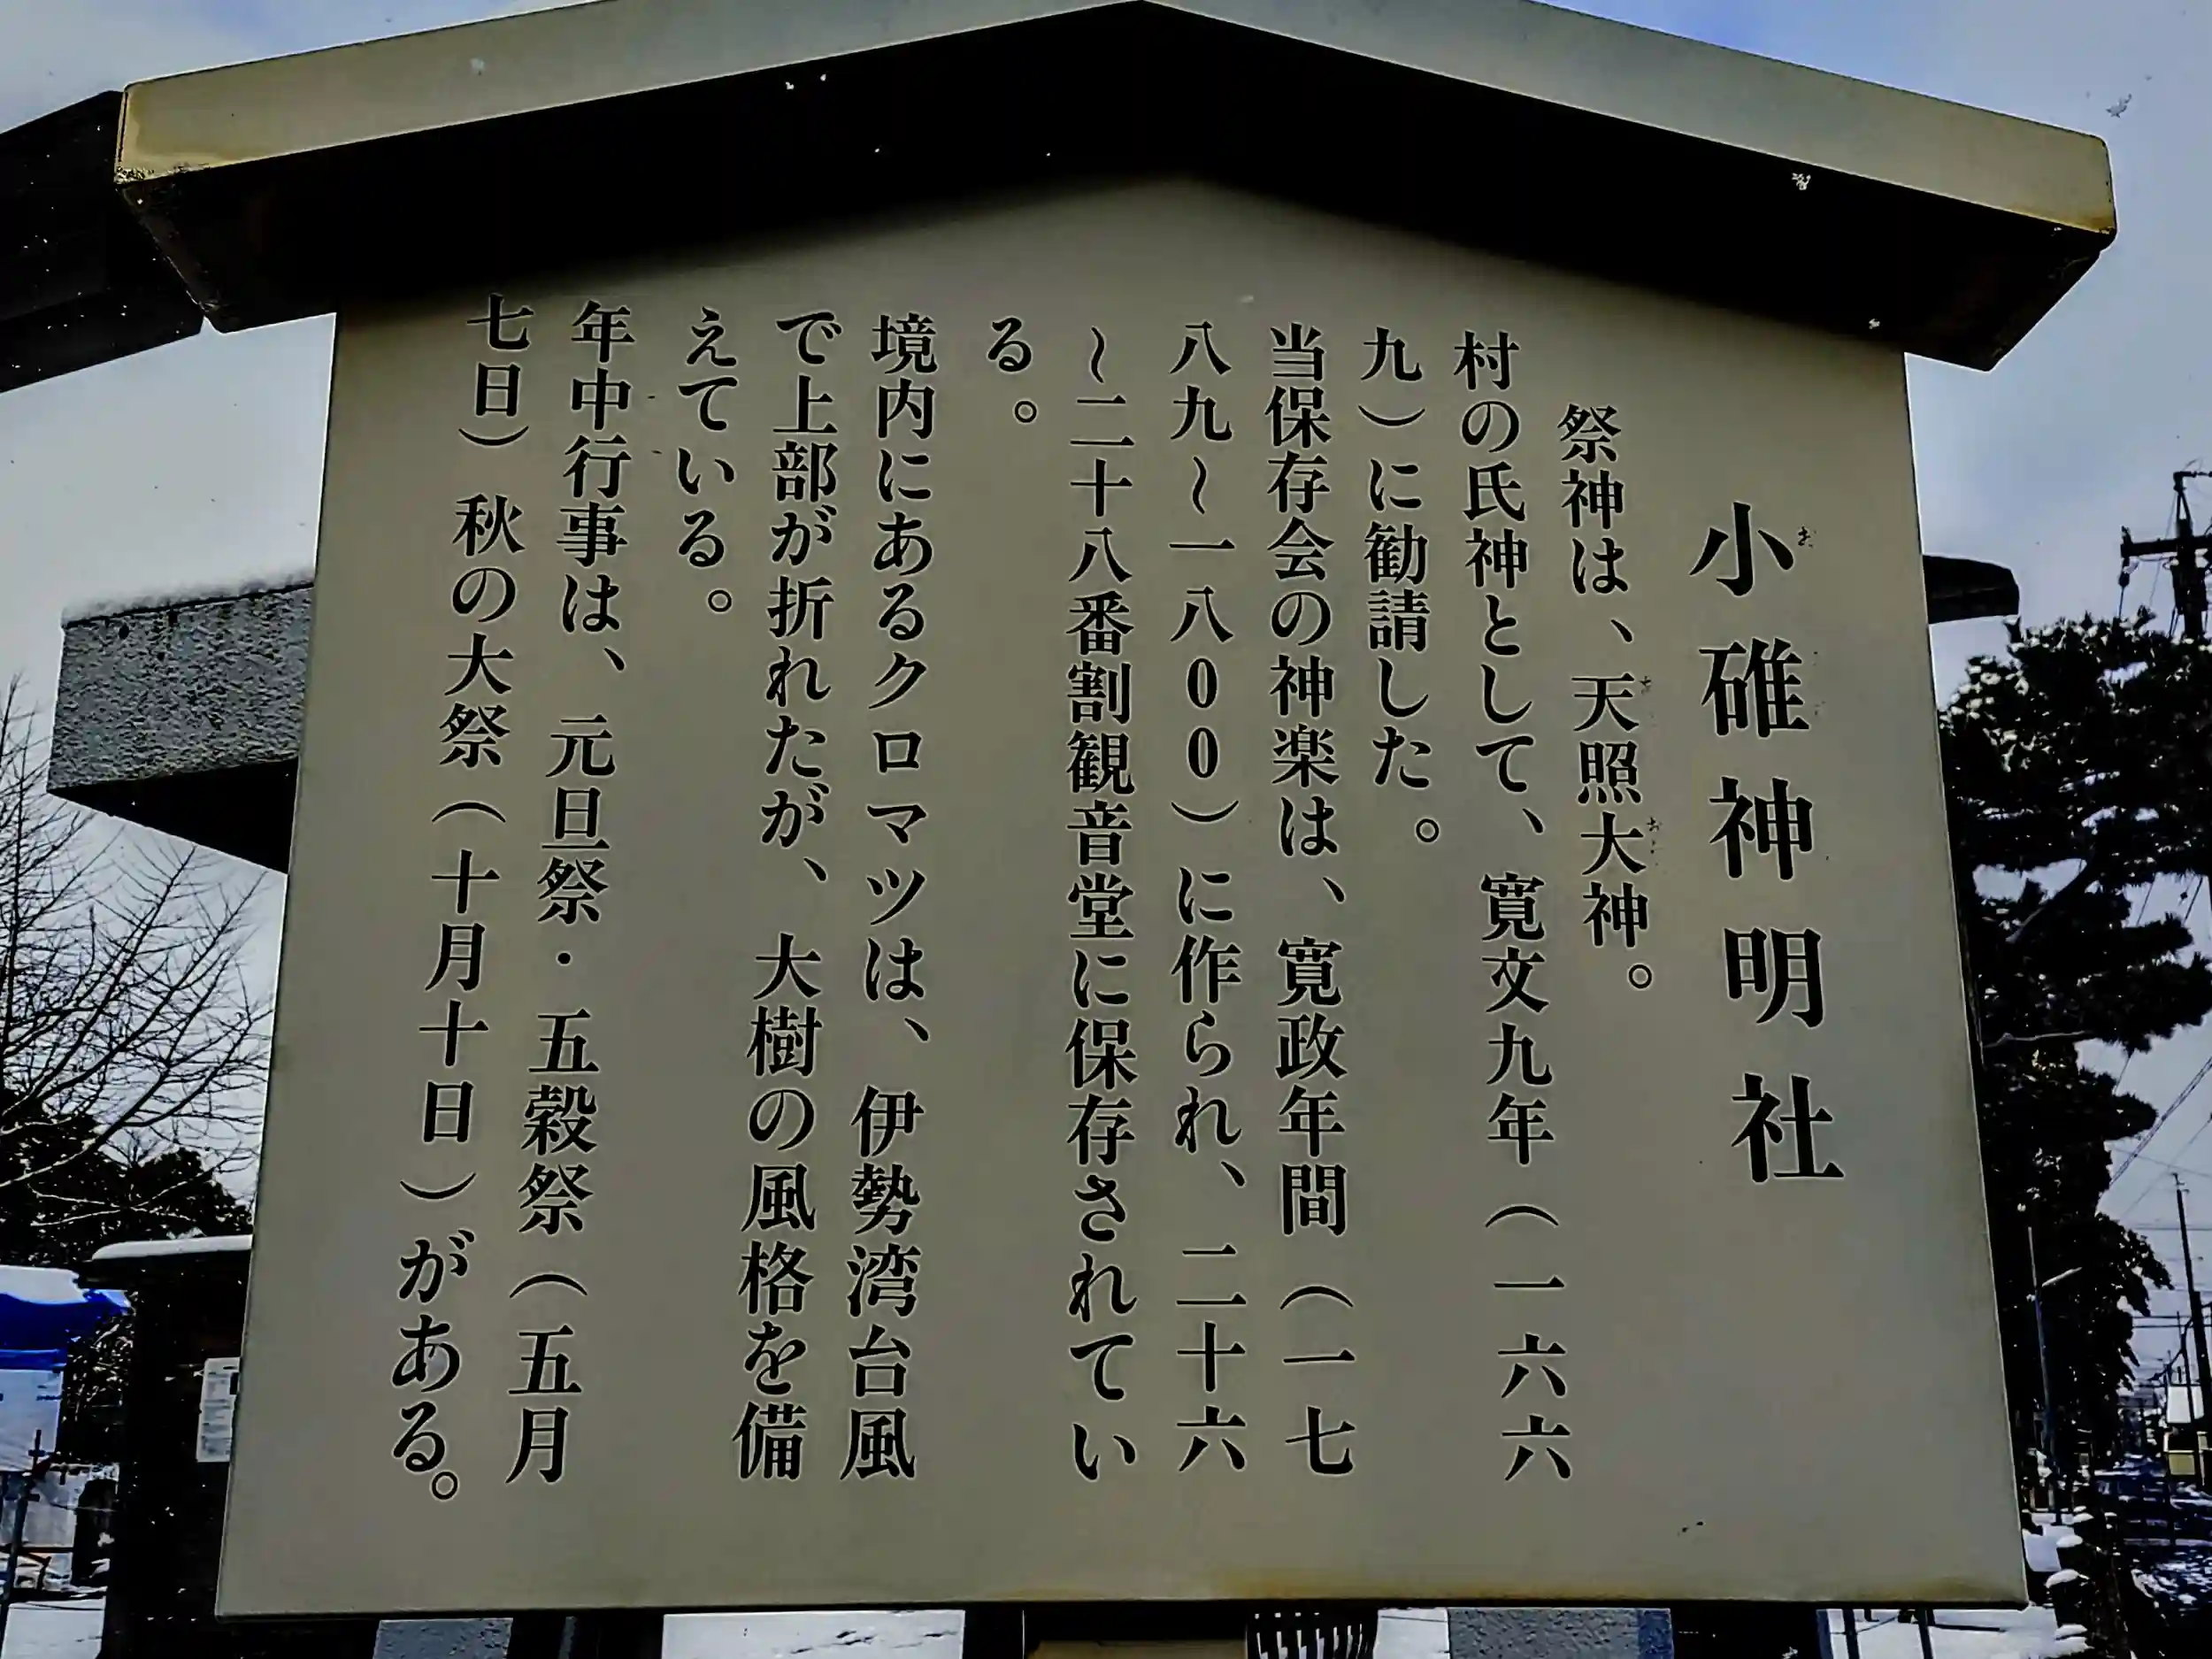 小碓神明社
祭神は、天照大神。
村の氏神として、寛文九年(一六六
九)に勧請した。
当保存会の神楽は、寛政年間(一七
八九〜一八00)に作られ、二十六
〜二十八番割観音堂に保存されてい
る。
境内にあるクロマツは、伊勢湾台風
で上部が折れたが、大樹の風格を備
えている。
年中行事は、元旦祭・五穀祭(五月
七日)秋の大祭(十月十日)がある。